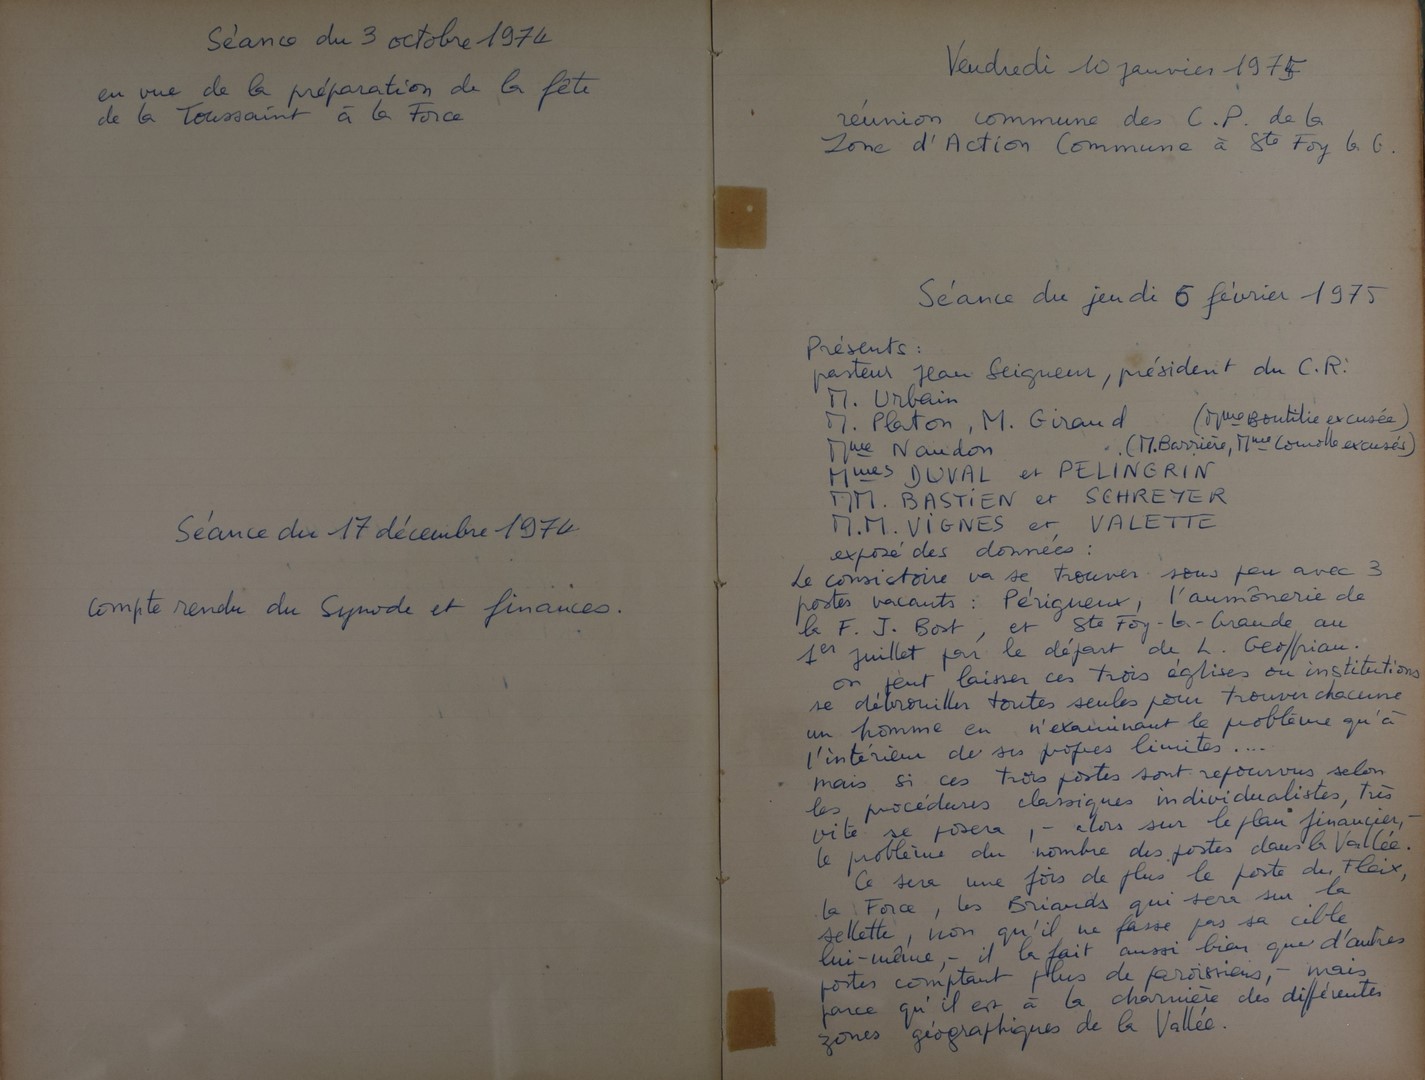 Séance du 3 octobre 1974
en vue de la préparation de la fête
de la Toussaint à la Force
Séance du 17 décembre 1974
compte rendu du Synode et finances.
Vendredi 10 janvier 1975
réunion commune des C.P. de la
Zone d'Action Commune à Ste Foy la G.
Séance du jeudi 6 février 1975
Présents :
pasteur Jean Seigneur, président du C.R.
M. Urbain
M. Platon, M. Giraud (Mme Boutilie excusée)
Mme Naudon (M. Barrière, Mme excusés)
Mmes DUVAL et PELINGRIN
MM. BASTIEN et SCHREYER
M.M. VIGNES et VALETTE
exposé des données :
Le consistoire va se trouver sous peu avec 3
postes vacants : Périgueux, l'aumônerie de
la F. J. Bost, et Ste Foy-la-Grande au
1er juillet par le départ de L. Geoffriau.
on peut laisser ces trois églises ou institutions
se débrouiller toutes seules pour trouver chacune
un homme en n'examinant le problème qu'à
l'intérieur de ses propres limites....
mais si ces trois postes sont repourvus selon
les procédures classiques individualistes, très
vite se posera, - alors sur le plan financier, -
le problème du nombre des postes dans la Vallée.
Ce sera une fois de plus le poste du Fleix,
la Force, les Briands qui sera sur la
sellette, non qu'il ne fasse pas sa cible
lui-même, - il la fait aussi bien que d'autres
postes comptant plus de paroissiens, - mais
parce qu'il est à la charnière des différentes
zones géographiques de la Vallée.